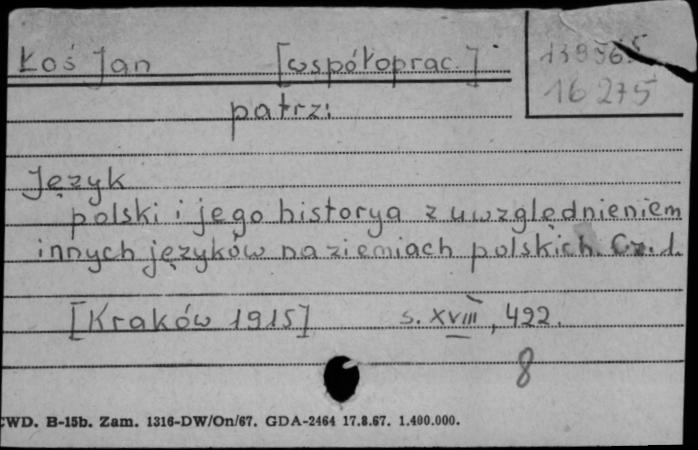 Łoś Jan [współoprac.]
16 275
patrz:
Język
polski i jego historya z uwzględnieniem
innych języków na ziemiach polskich. Cz. 1.
[Kraków 1915] s. XVIII, 422.
8
CWD. B-15b. Zam. 1316-DW/On/67. GDA-2464 17.8.67. 1.400.000.